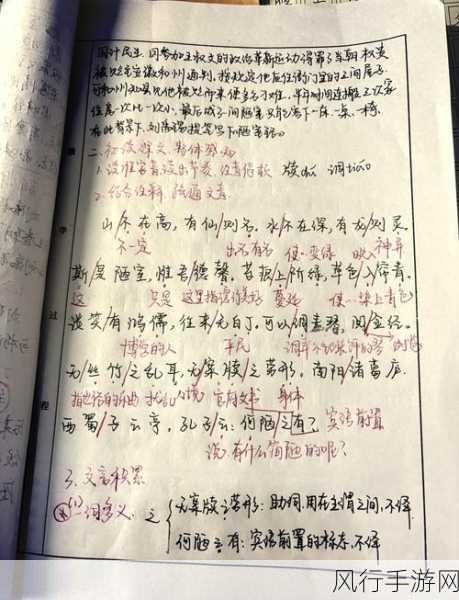 国计民生。因参加王叔文的政治革新运动得罪了当朝权贵
被贬至安徽和州通判。按规定他应住衙门里的三间屋子。
可和州知县见他被贬而来便多方刁难,半年时间连搬三次家
住房一次比一次小,最后成了一间陋室 只能容下一床一桌一椅
在此背景下,刘禹锡提笔写下陋室铭。
二、初读释文,整体感知
1、读准字音读出节奏,注意停顿 读2
2、结合注释,疏通文意
山/不在高,有仙/则名。水/不在深,有龙/则灵。
不一定 出名 有名 使…变绿 映入 神异
斯/是陋室,惟吾/德馨。苔痕/上阶绿,草色/入帘青。
这 只是 这里指德行美好 蔓延 使…染上青色
谈笑/有鸿儒,往来/无白丁。可以/调素琴,阅/金经。
博学的人 平民 调弄不加装饰的琴
无/丝竹/之乱耳,无/案牍/之劳形。南阳/诸葛庐,
指奏乐的声音 扰乱 官府文书 身体
西蜀/子云亭。孔子/云:何陋之有? 宾语前置
说:有什么简陋的呢?
3、文言积累
(1) 一词多义:之
无案牍之劳形:助词,用在主谓之间,不译
何陋之有:宾语前置的标志,不译
学
过
程
风行手游网